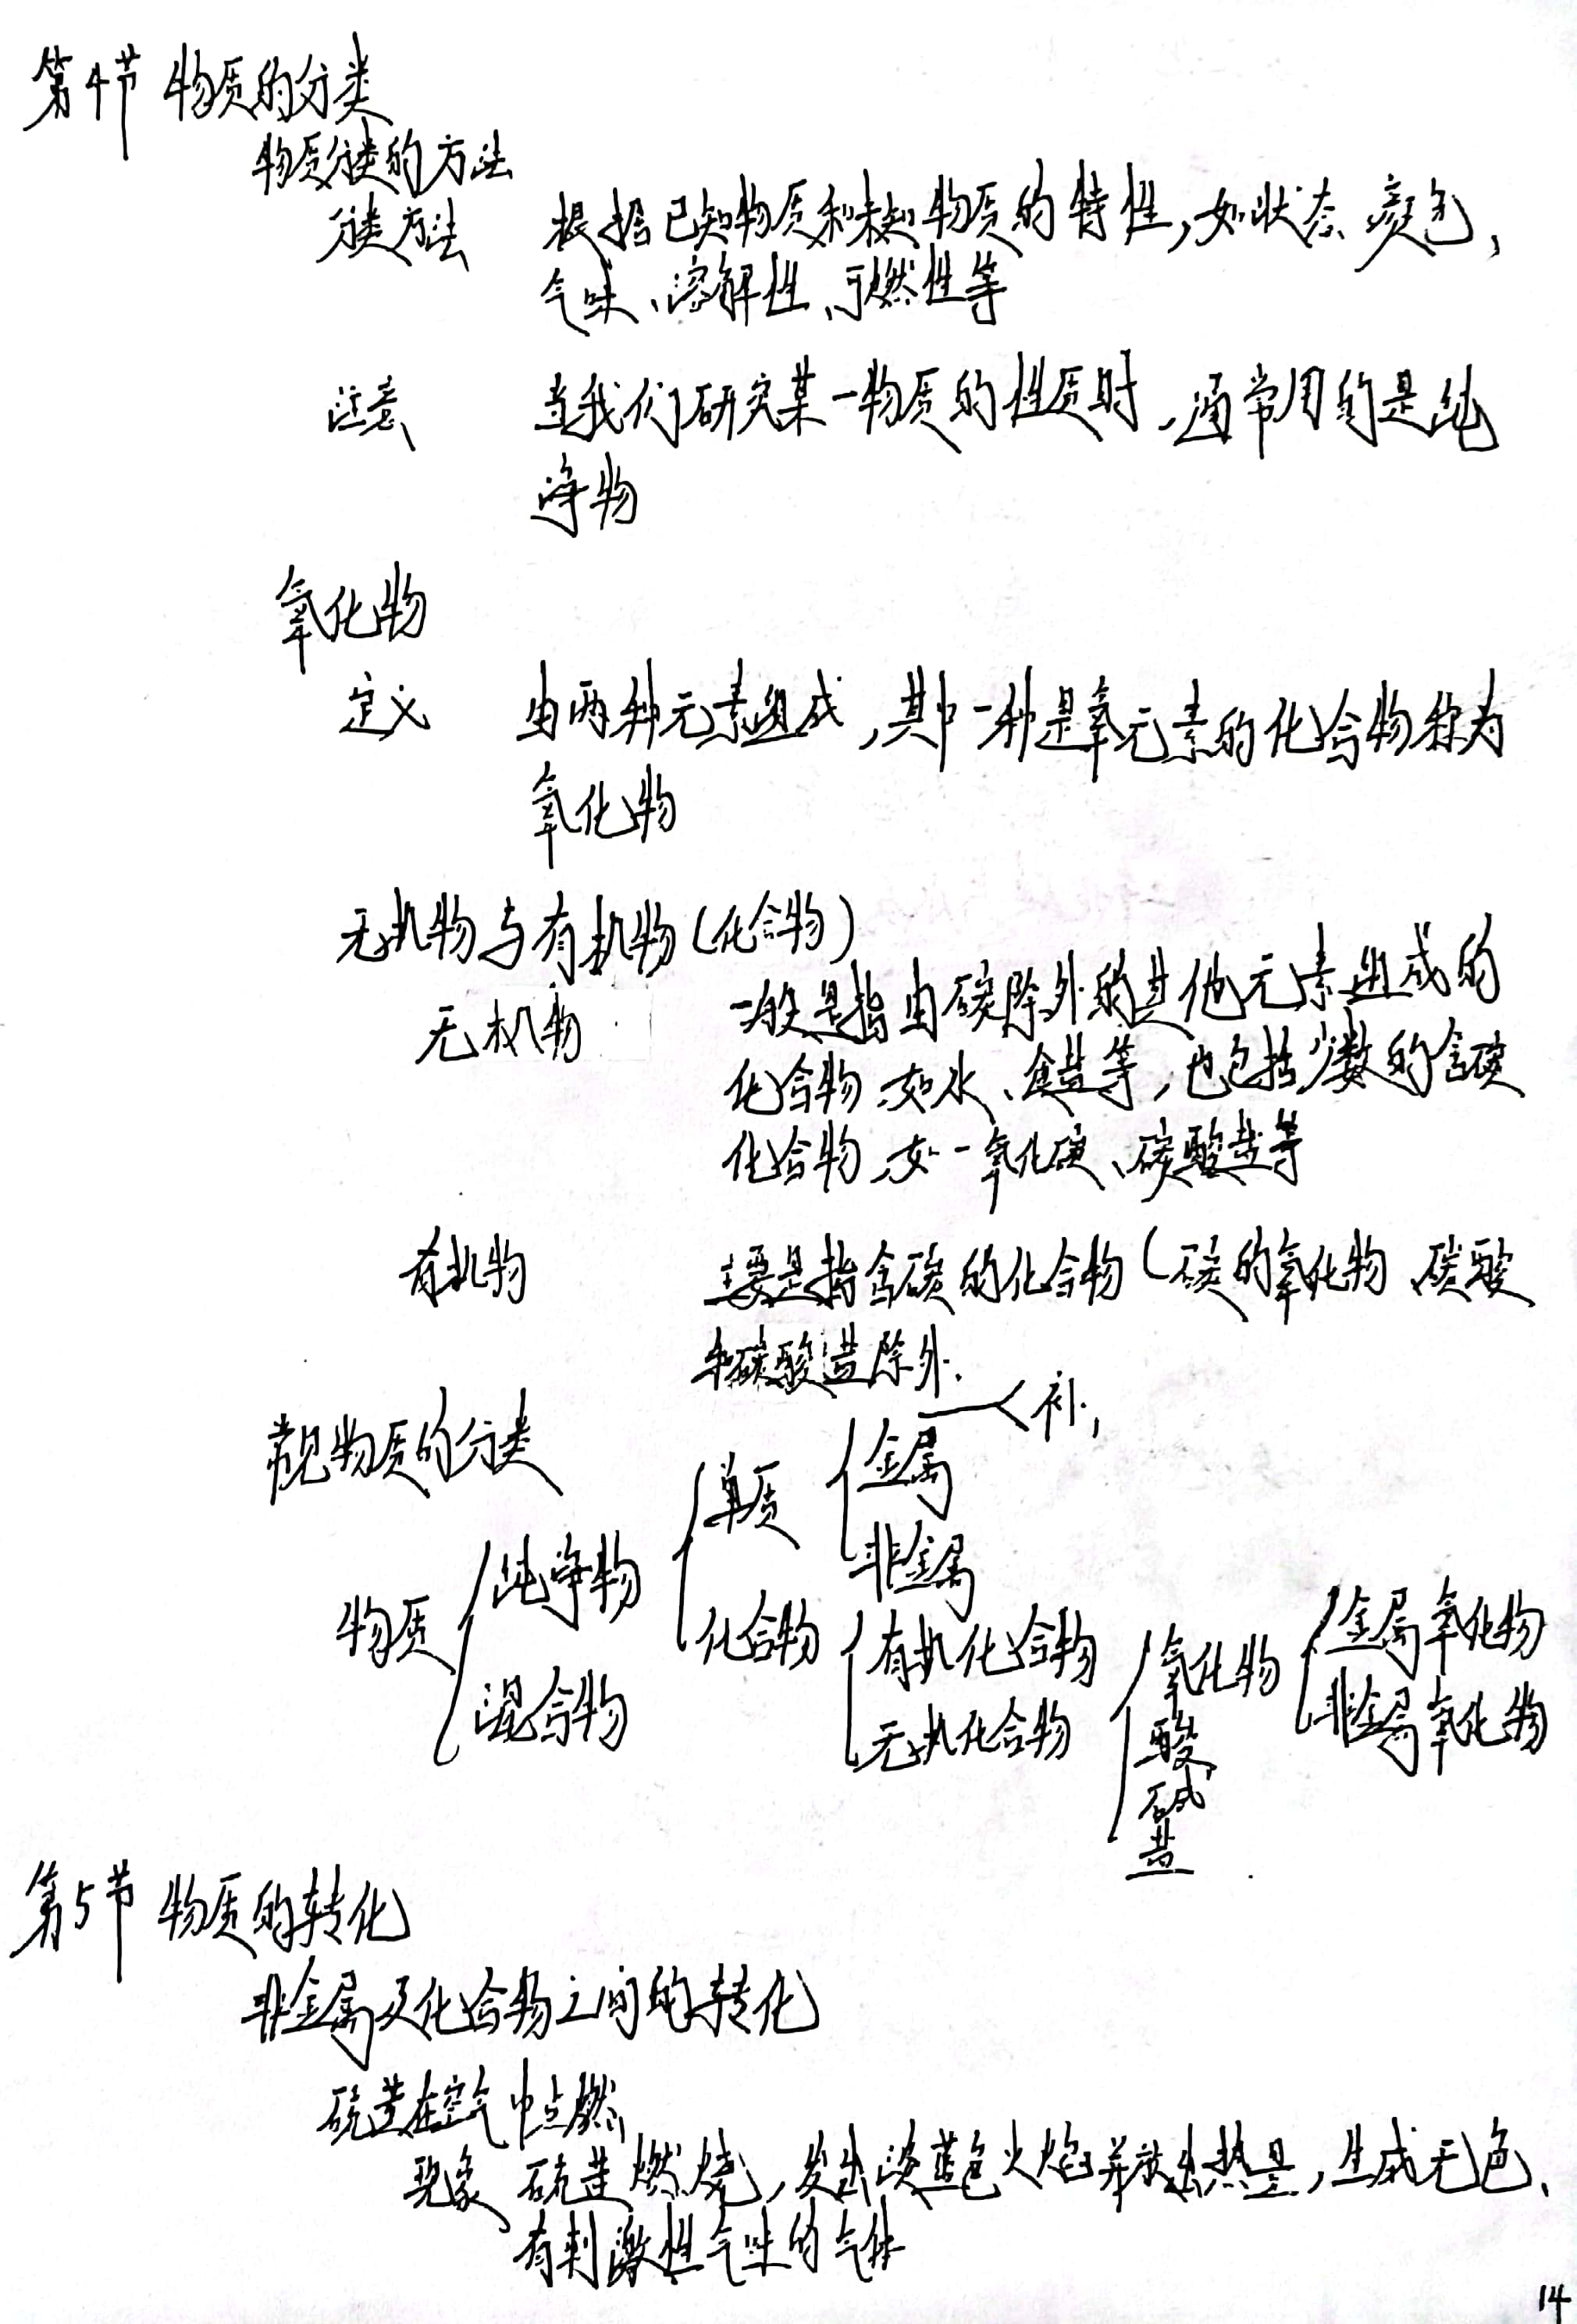 第4节 物质的分类
物质分类的方法
分类方法 根据已知物质和未知物质的特性,如状态、颜色,
气味、溶解性、可燃性等
注意 当我们研究某一物质的性质时,通常用的是纯
净物
氧化物
定义 由两种元素组成,其中一种是氧元素的化合物称为
氧化物
无机物与有机物(化合物)
无机物 一般是指由碳除外的其他元素组成的
化合物,如水、食盐等,也包括少数的含碳
化合物,如一氧化碳、碳酸盐等
有机物 主要是指含碳的化合物(碳的氧化物、碳酸
和碳酸盐除外.
补,
常见物质的分类
单质 金属
非金属
物质 纯净物
化合物 有机化合物 氧化物 金属氧化物
混合物 无机化合物 酸 非金属氧化物
碱
盐
第5节 物质的转化
非金属及化合物之间的转化
硫黄在空气中点燃
现象 硫黄燃烧,发出淡蓝色火焰并放出热量,生成无色、
有刺激性气味的气体
14